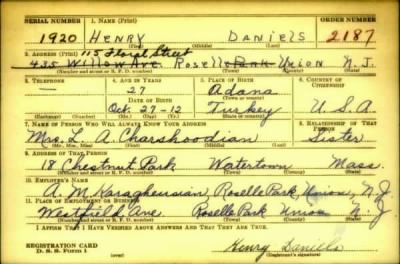 SERIAL NUMBER 1. NAME (Print) ORDER NUMBER
1920 HENRY DANIELS 2187
(First) (Middle) (Last)
2. ADDRESS (Print) 115 Floral Street
435 WILLOW AVE. ROSELLE PARK UNION N.J.
(Number and street or R. F. D. number) (Town) (County) (State)
3. TELEPHONE 4. AGE IN YEARS 5. PLACE OF BIRTH 6. COUNTRY OF CITIZENSHIP
27 Adana
DATE OF BIRTH (Town or county)
Oct 27-12 Turkey U.S.A
(Exchange) (Number) (Mo.) (Day) (Yr.) (State or country)
7. NAME OF PERSON WHO WILL ALWAYS KNOW YOUR ADDRESS 8. RELATIONSHIP OF THAT PERSON
Mrs. L. A. Charshoodian Sister
(Mr., Mrs., Miss) (First) (Middle) (Last)
9. ADDRESS OF THAT PERSON
18 Chestnut Park Watertown Mass.
(Number and street or R. F. D. number) (Town) (County) (State)
10. EMPLOYER'S NAME
A. M. Karagheusian, Roselle Park, Union, N.J.
11. PLACE OF EMPLOYMENT OR BUSINESS
Westfield Ave. Roselle Park Union N.J.
(Number and street or R. F. D. number) (Town) (County) (State)
I AFFIRM THAT I HAVE VERIFIED ABOVE ANSWERS AND THAT THEY ARE TRUE.
REGISTRATION CARD
D. S. S. Form 1 (over) Henry Daniels
(Registrant's signature)